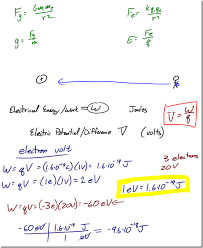 Fg = Gm₁m₂/r²
FE = kq₁q₂/r²
g = Fg/m
E = FE/q
Electrical Energy/Work = W Joules
V = W/q
Electric Potential/Difference V (volts)
electron volt
W = qV = (1.6·10⁻¹⁹C)(1V) = 1.6·10⁻¹⁹J
3 electrons
20V
W = qV = (1e)(1V) = 1 eV
1eV = 1.6·10⁻¹⁹J
W = qV = (-3e)(20V) = -60eV
-60eV | 1.6·10⁻¹⁹J / 1 eV = -9.6·10⁻¹⁸J